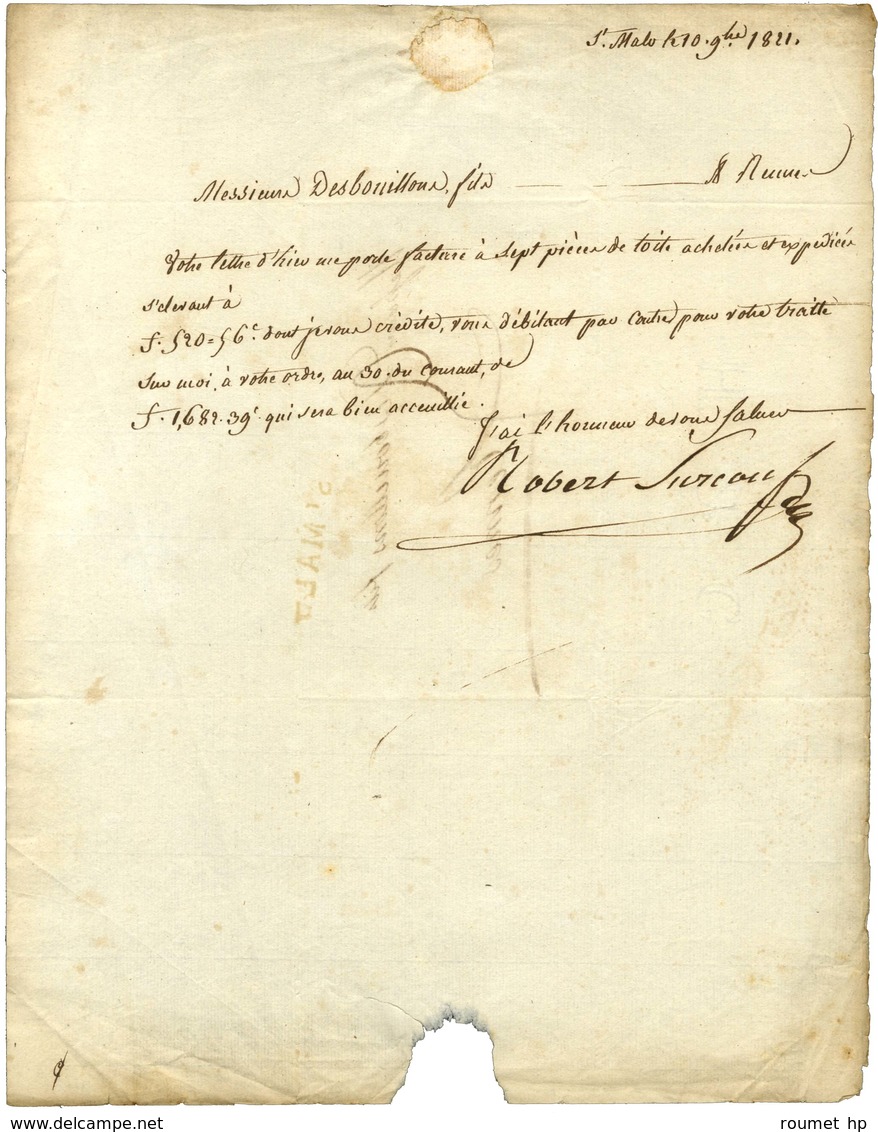 St. Malo le 10. 9bre 1821.
Messieurs Desbouillons, fils — — — A Rennes
Votre lettre d'hier me porte facture à sept pièces de toile achetées et expediées
s'elevant à
f. 520=56c. dont je vous crédite, vous débitant par contre, pour votre traitte
sur moi, à votre ordre, au 30. du Courant, de
f. 1,682.39c. qui sera bien acceuillie.
J'ai l'honneur de vous saluer
Robert Surcouf
ST MALO
roumet hp